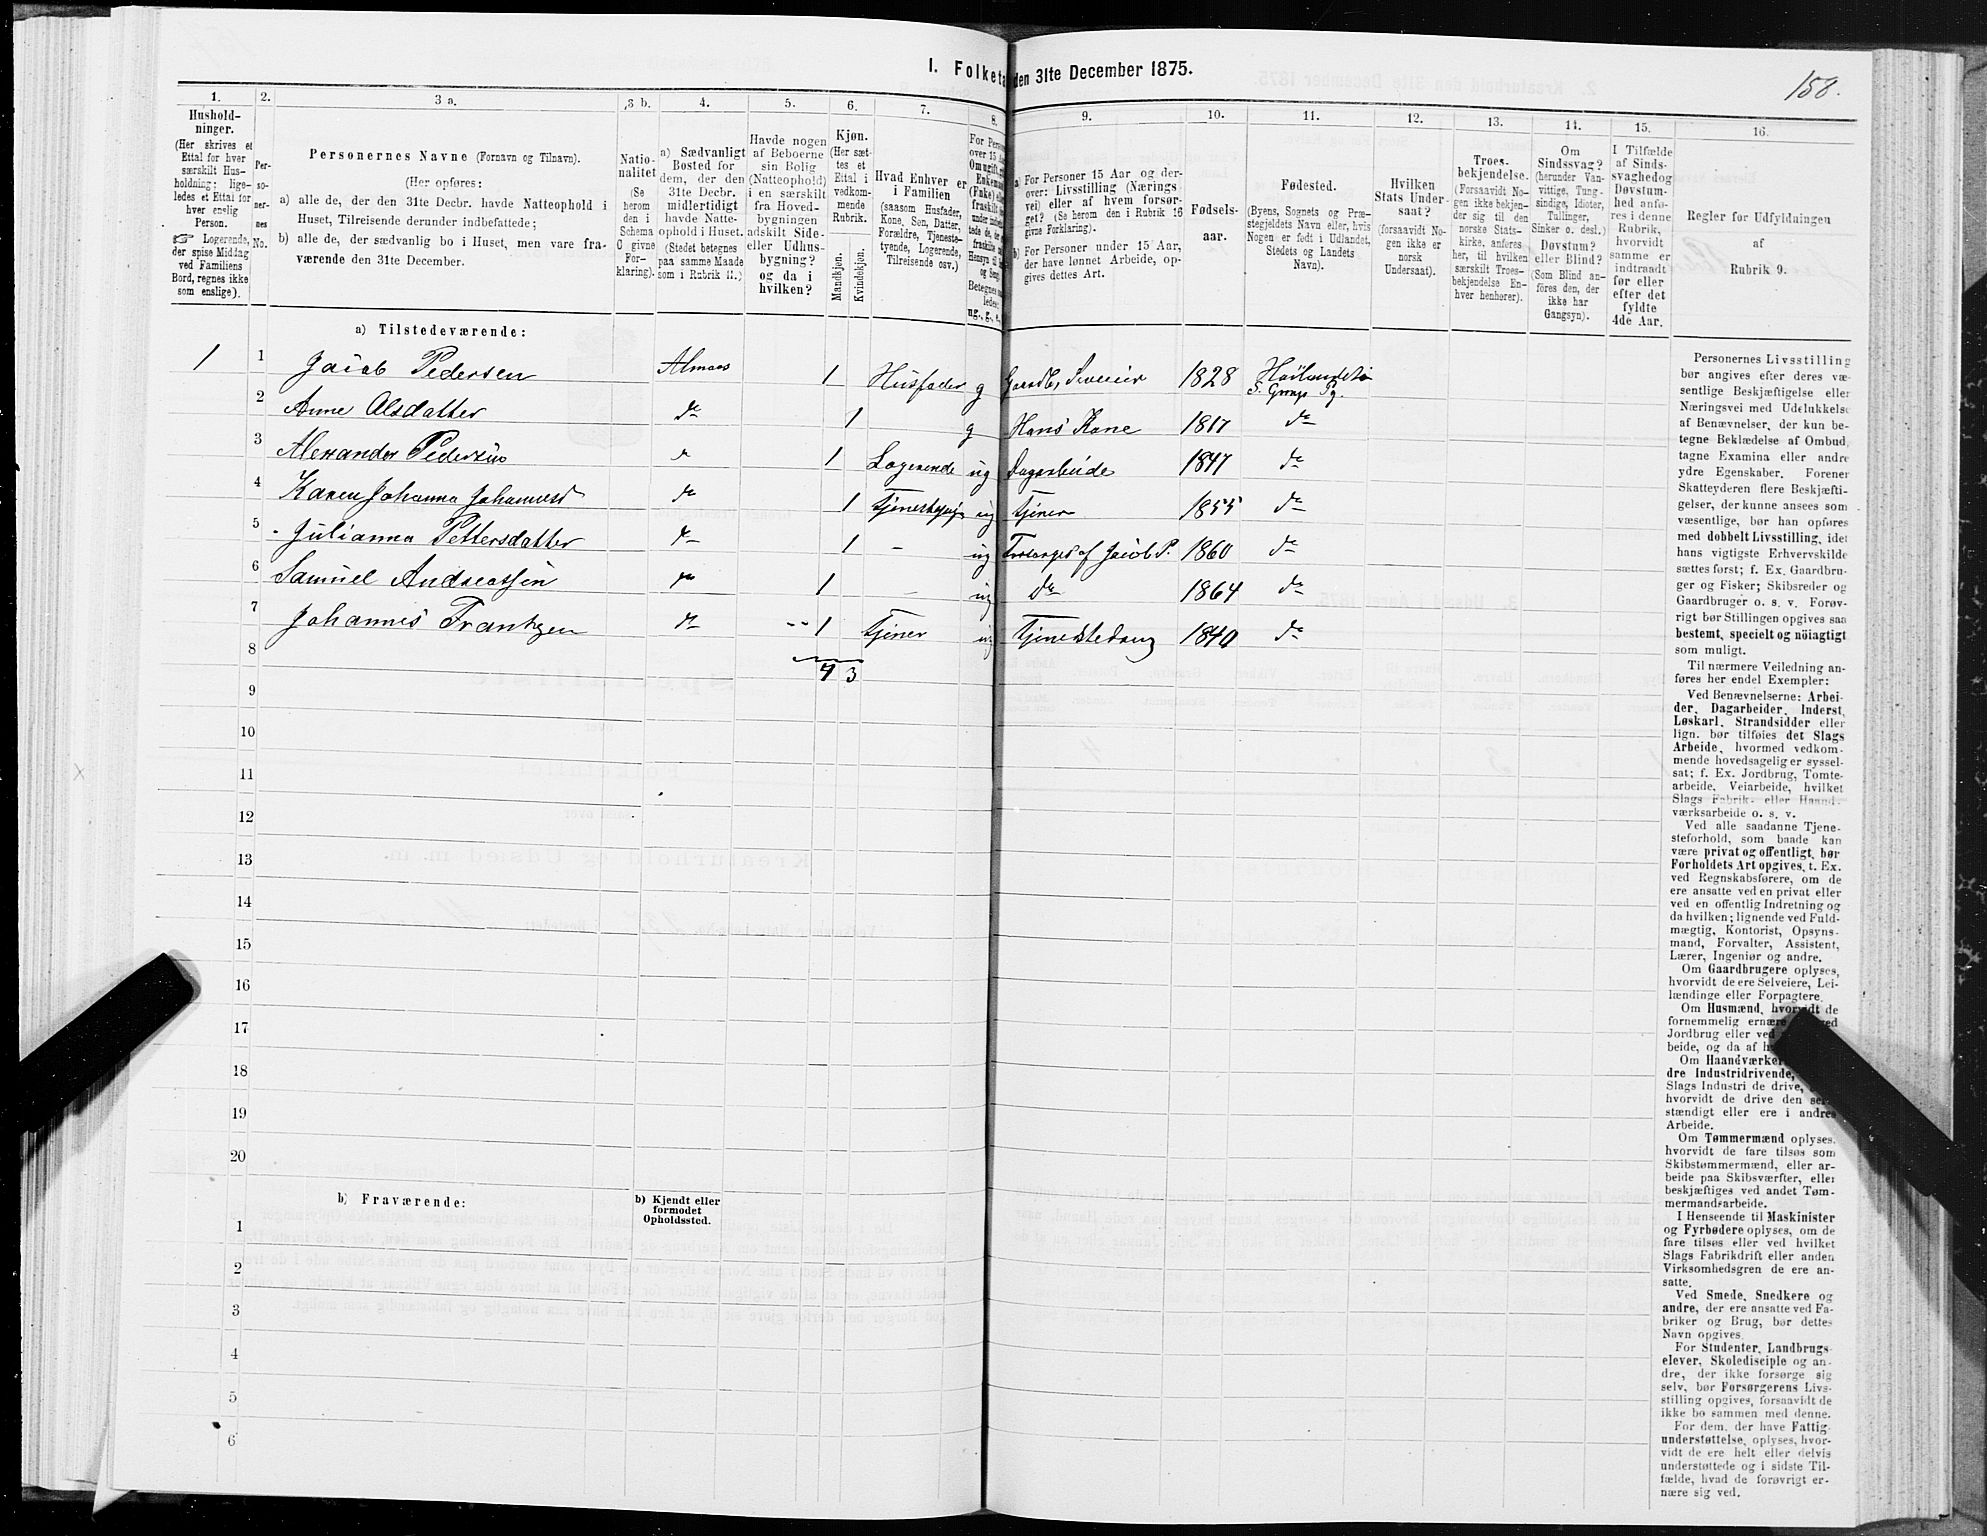 I. Folketa den 31te December 1875.
158.
1.
Hushold-
ninger.
(Her skrives et
Ettal for hver
særskilt Hus-
holdning; lige-
ledes et Ettal for
hver enslig
Person.
☞ Logerende,
der spise Middag
ved Familiens
Bord, regnes ikke
som enslige).
2.
Per-
so-
ner-
nes
No.
3 a.
Personernes Navne (Fornavn og Tilnavn).
(Her opføres:
a) alle de, der den 31te Decbr. havde Natteophold i
Huset, Tilreisende derunder indbefattede;
b) alle de, der sædvanlig bo i Huset, men vare fra-
værende den 31te December.
3 b.
Natio-
nalitet
(Se
herom
den i
Schema
C givne
For-
klaring).
4.
a) Sædvanligt
Bosted for
dem, der den
31te Decbr.
midlertidigt
havde Natte-
ophold i Huset.
(Stedet betegnes
paa samme Maade
som i Rubrik 11.)
5.
Havde nogen
af Beboerne
sin Bolig
(Natteophold)
i en særskilt
fra Hoved-
bygningen
adskilt Side-
eller Udhus-
bygning?
og da i
hvilken?
6.
Kjøn.
(Her sæt-
tes et
Ettal i
vedkom-
mende
Rubrik.
Mandkjøn.
Kvindekjøn.
7.
Hvad Enhver er
i Familien
(saasom Husfader,
Kone, Søn, Datter,
Forældre, Tjeneste-
tyende, Logerende,
Tilreisende osv.)
8.
For Perso
over 15 Aar
Om ugift, g
Enkeman
(Enke) elle
fraskilt
Betegnes
ledes:
ug., g., e.,
9.
a For Personer 15 Aar og der-
over: Livsstilling (Nærings
vei) eller af hvem forsør-
get? (Se herom den i Rubrik 16
givne Forklaring).
b) For Personer under 15 Aar,
der have lønnet Arbeide, op-
gives dettes Art.
10.
Fødsels-
aar.
11.
Fødested.
(Byens, Sognets og Præ-
stegjeldets Navn eller, hvis
Nogen er født i Udlandet,
Stedets og Landets
Navn).
12.
Hvilken
Stats Under-
saat?
(forsaavidt No-
gen ikke er
norsk
Undersaat).
13.
Troes-
bekjendelse.
(Forsaavidt No-
gen ikke bekjen-
der sig til den
norske Stats-
kirke, anføres
her, til hvilken
særskilt Troes-
bekjendelse En-
hver henhører).
14.
Om
Sindssvag?
(herunder Van-
vittige, Tung-
sindige, Idioter,
Tullinger,
Sinker o. desl.)
Døvstum?
eller Blind?
(Som Blind an-
føres den, der
ikke har
Gangsyn).
15.
I Tilfælde
af Sinds-
svaghed og
Døvstum-
hed anfø-
res i denne
Rubrik,
hvorvidt
samme er
indtraadt
før eller
efter det
fyldte
4de Aar.
16.
Regler for Udfyldningen
af
Rubrik 9.
a) Tilstedeværende:
1 1 Jacob Pedersen Almaas 1 Husfader g Gaardb, Seveier 1828 Høilandet
2 Anne Olsdatter do 1 g Hans Kone 1817 do
3 Alexander Pedersen do 1 Logerende ug Dagarbeide 1847 do
4 Karen Johanna Johannesd do 1 ug Tjener 1855 do
5 Julianna Pettersdatter do 1 - ug Forsørges af Jacob P. 1860 do
6 Samuel Andreassen do 1 - ug do 1864 do
7 Johannes Frantzen do 1 Tjener ug 1840 do
8 4 3
9
10
11
12
13
14
15
16
17
18
19
20
b) Fraværende:
b) Kjendt eller
formodet
Opholdssted.
1
2
3
4
5
6
Personernes Livsstilling
bør angives efter deres væ-
sentlige Beskjæftigelse eller
Næringsvei med Udelukkelse
af Benævnelser, der kun be-
tegne Beklædelse af Ombud,
tagne Examina eller andre
ydre Egenskaber. Forener
Skatteyderen flere Beskjæfti-
gelser, der kunne ansees som
væsentlige, bør han opføres
med dobbelt Livsstilling, idet
hans vigtigste Erhvervskilde
sættes først; f. Ex. Gaardbru-
ger og Fisker; Skibsreder og
Gaardbruger o. s. v. Forøv-
rigt bør Stillingen opgives saa
bestemt, specielt og nöiagtigt
som muligt.
Til nærmere Veiledning an-
føres her endel Exempler:
Ved Benævnelserne: Arbei-
der, Dagarbeider, Inderst,
Løskarl, Strandsidder eller
lign. bør tilføies det Slags
Arbeide, hvormed vedkom-
mende hovedsagelig er syssel-
sat; f. Ex. Jordbrug, Tomte-
arbeide, Veiarbeide, hvilket
Slags Fabrik- eller Haand-
værksarbeide o. s. v.
Ved alle saadanne Tjene-
steforhold, som baade kan
være privat og offentligt, bør
Forholdets Art opgives, t. Ex.
ved Regnskabsførere, om de
ere ansatte ved en privat eller
ved en offentlig Indretning og
da hvilken; lignende ved Fuld-
mægtig, Kontorist, Opsyns-
mand, Forvalter, Assistent,
Lærer, Ingeniør og andre.
Om Gaardbrugere oplyses,
hvorvidt de ere Selveiere, Lei-
lændinge eller Forpagtere.
Om Husmænd, hvorvidt de
fornemmelig ernære ved
Jordbrug eller ved
beide, og da af h
Om Haandværker
dre Industridrivende,
Slags Industri de drive,
hvorvidt de drive den sel
stændigt eller ere i andres
Arbeide.
Om Tømmermænd oplyses,
hvorvidt de fare tilsøs som
Skibstømmermænd, eller ar-
beide paa Skibsværfter, eller
beskjæftiges ved andet Tøm-
mermandsarbeide.
I Henseende til Maskinister
og Fyrbødere oplyses, om de
fare tilsøs eller ved hvilket
Slags Fabrikdrift eller anden
Virksomhedsgren de ere an-
satte.
Ved Smede, Snedkere og
andre, der ere ansatte ved Fa-
briker og Brug, bør dettes
Navn opgives.
For Studenter, Landbrugs-
elever, Skoledisciple og an-
dre, der ikke forsørge sig
selv, bør Forsørgerens Livs-
stilling opgives, forsaavidt de
ikke bo sammen med denne.
For dem, der have Fattig-
understøttelse, oplyses, hvor-
vidt de ere helt eller delvis
understøttede og i sidste Til-
fælde, hvad de forøvrigt er-
nære sig ved.